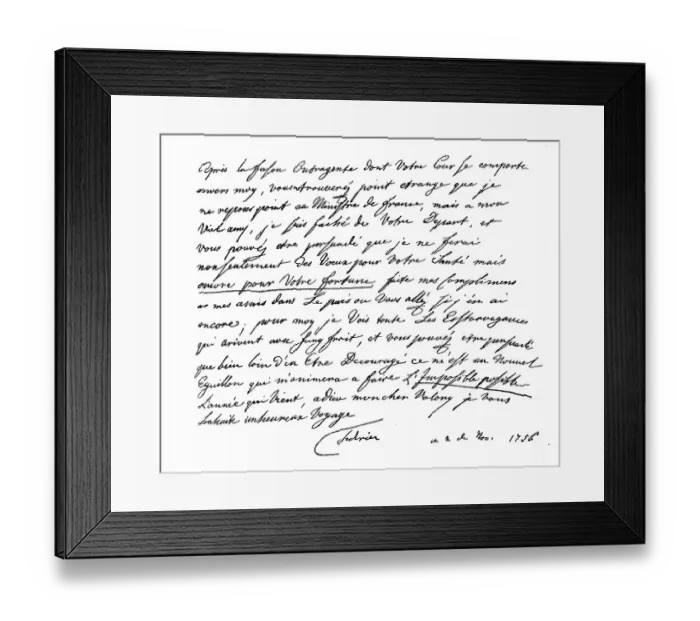 Après la fason Outragente dont Votre Cour se comporte
anvers moy, vous trouverez point etrange que je
ne repons point au Ministre de france, mais a mon
Vieil amy, je suis faché de Votre Depart, et
vous pouvéz etre persuadé que je ne ferai
non seulement des Vœux pour votre Santé mais
encore pour Votre fortune, faite mes Complimens
a mes amis dans Le païs ou Vous alléz si j'én ai
encore; pour moy je Vois toute Les Extravagances
qui arivent avec Sang froit, et vous pouvéz etre persuadé
que bien loin d'en Etre Decouragé ce n'est un Nouvel
Eguillon qui m'animera a faire L'Impossible possible
L'année qui Vient, adieu mon cher Valory je vous
Souhaite un heureux Voyage
Federic
ce 2 de Nov. 1756.